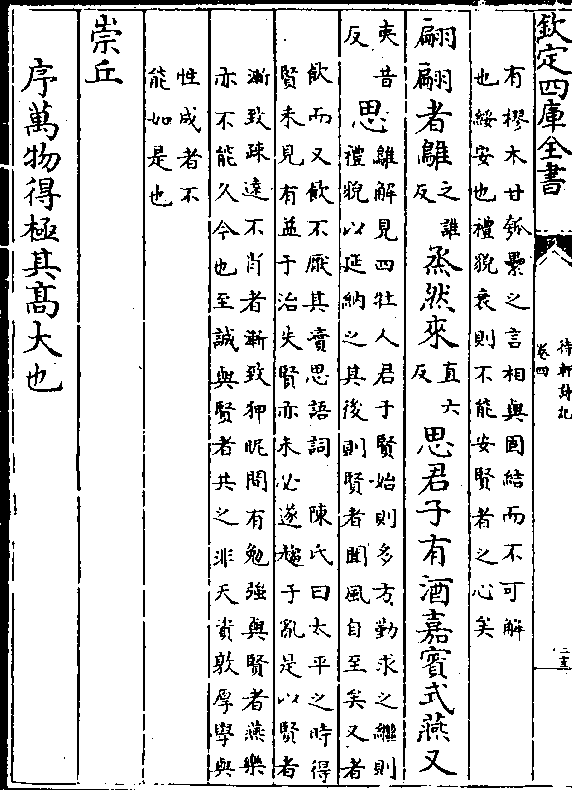 欽定四庫全書
待軒詩記
卷四
有樛木甘瓠纍之言相與固結而不可解
也綏安也禮貌衰則不能安賢者之心矣
翩翩者鵻之誰反烝然來直六反思君子有酒嘉賓式燕又
夷昔反思鵻解見四牡人君于賢始則多方勤求之繼則
禮貌以延納之其後則賢者聞風自至矣又者
飲而又飲不厭其思語詞 陳氏曰太平之時得
賢未見有益于治失賢亦未必遂趨于亂是以賢者
漸致疎遠不肖者漸致狎昵間有勉強與賢者燕樂
亦不能久今也至誠與賢者共之非天資敦厚學與
性成者不
能如是也
崇丘
序萬物得極其髙大也